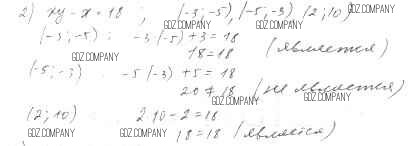 2) xy - x = 18 ; (-3; -5), (-5; -3) (2; 10)
GDZ.COMPANY GDZ.COMPANY GDZ.COMPANY
(-3; -5) : -3·(-5) + 3 = 18
GDZ.COMPANY 18 = 18 (является) GDZ.COMPANY
(-5; -3) -5·(-3) + 5 = 18
20 ≠ 18 (не является)
GDZ.COMPANY GDZ.COMPANY
(2; 10) 2·10 - 2 = 18
GDZ.COMPANY GDZ.COMPANY 18 = 18 (является) GDZ.COMPANY